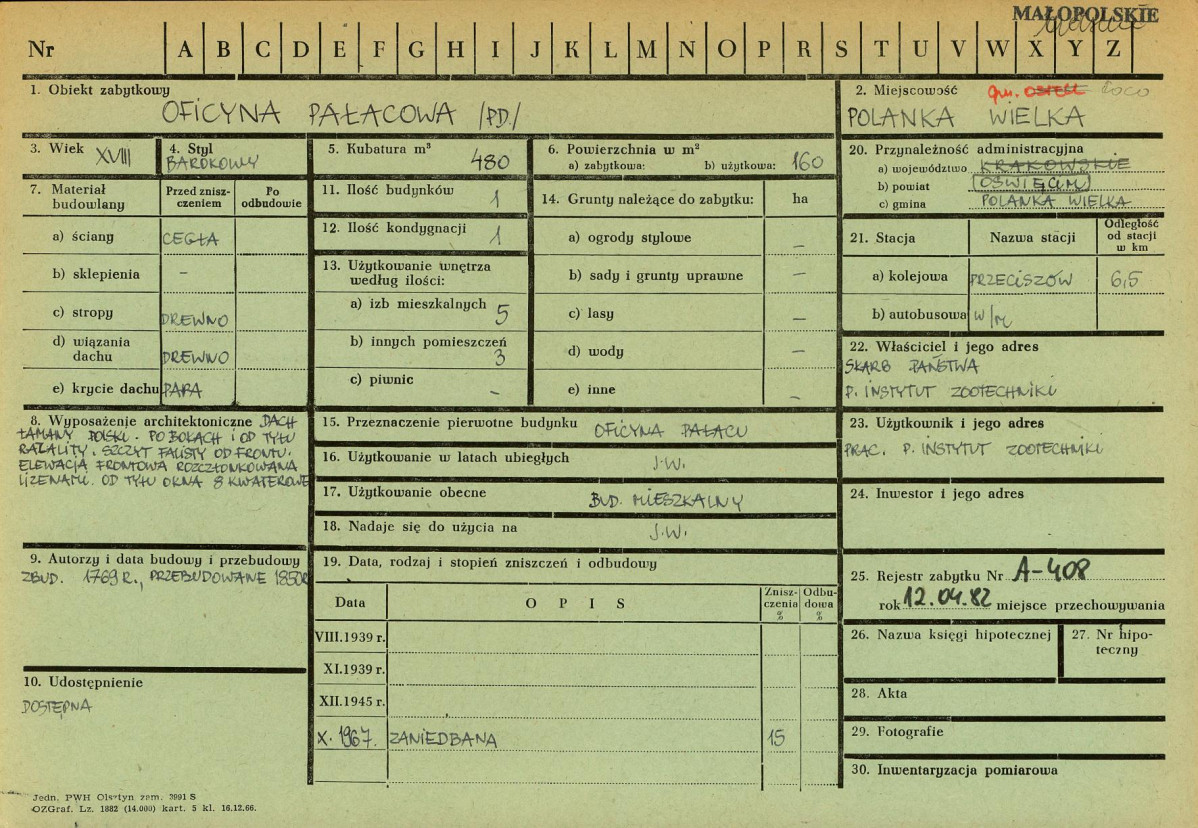 MAŁOPOLSKIE
Nr A B C D E F G H I J K L M N O P R S T U V W X Y Z
1. Obiekt zabytkowy
OFICYNA PAŁACOWA /PD./
2. Miejscowość gm.
POLANKA WIELKA
3. Wiek XVIII
4. Styl
BAROKOWY
5. Kubatura m³
480
6. Powierzchnia w m²
a) zabytkowa: b) użytkowa: 160
20. Przynależność administracyjna
a) województwo KRAKOWSKIE
b) powiat OŚWIĘCIM
c) gmina POLANKA WIELKA
7. Materiał budowlany
Przed zniszczeniem
Po odbudowie
a) ściany CEGŁA
b) sklepienia –
c) stropy DREWNO
d) wiązania dachu DREWNO
e) krycie dachu PAPA
11. Ilość budynków 1
12. Ilość kondygnacji 1
13. Użytkowanie wnętrza według ilości:
a) izb mieszkalnych 5
b) innych pomieszczeń 3
c) piwnic –
14. Grunty należące do zabytku: ha
a) ogrody stylowe –
b) sady i grunty uprawne –
c) lasy –
d) wody –
e) inne –
21. Stacja Nazwa stacji Odległość od stacji w km
a) kolejowa PRZECISZÓW 6,5
b) autobusowa w/m
22. Właściciel i jego adres
SKARB PAŃSTWA
P. INSTYTUT ZOOTECHNIKI
8. Wyposażenie architektoniczne DACH
ŁAMANY POLSKI. PO BOKACH I OD TYŁU
FACJATY. SZCZYT FALISTY OD FRONTU.
ELEWACJA FRONTOWA ROZCZŁONKOWANA
LIZENAMI. OD TYŁU OKNA 8 KWATEROWE
15. Przeznaczenie pierwotne budynku OFICYNA PAŁACU
16. Użytkowanie w latach ubiegłych J.W.
17. Użytkowanie obecne BUD. MIESZKALNY
18. Nadaje się do użycia na J.W.
23. Użytkownik i jego adres
PRAC. P. INSTYTUT ZOOTECHNIKI
24. Inwestor i jego adres
9. Autorzy i data budowy i przebudowy
ZBUD. 1769 R., PRZEBUDOWANE 1850R
10. Udostępnienie
DOSTĘPNA
19. Data, rodzaj i stopień zniszczeń i odbudowy
Data OPIS Zniszczenia % Odbudowa %
VIII.1939 r.
XI.1939 r.
XII.1945 r.
X. 1967. ZANIEDBANA 15
25. Rejestr zabytku Nr A-408
rok 12.04.82 miejsce przechowywania
26. Nazwa księgi hipotecznej
27. Nr hipoteczny
28. Akta
29. Fotografie
30. Inwentaryzacja pomiarowa
Jedn. PWH Olsztyn zam. 3991 S
OZGraf. Lz. 1882 (14.000) kart. 5 kl. 16.12.66.